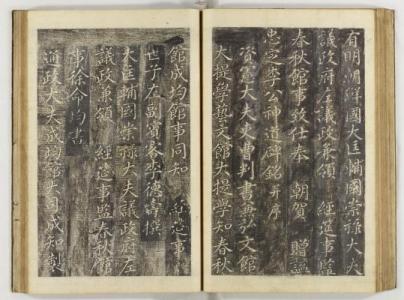 有明朝鮮國大匡輔國崇祿大夫
議政府左議政兼領 經筵事監
春秋館事致仕奉 朝賀 贈諡
忠定李公神道碑銘 并序
資憲大夫吏曹判書兼弘文館
大提學藝文館大提學知春秋
館成均館事同知 經筵事
世子左副賓客李德壽撰
大匡輔國崇祿大夫議政府左
議政兼領 經筵事監春秋館
事徐命均書
通政大夫成均館大司成知製